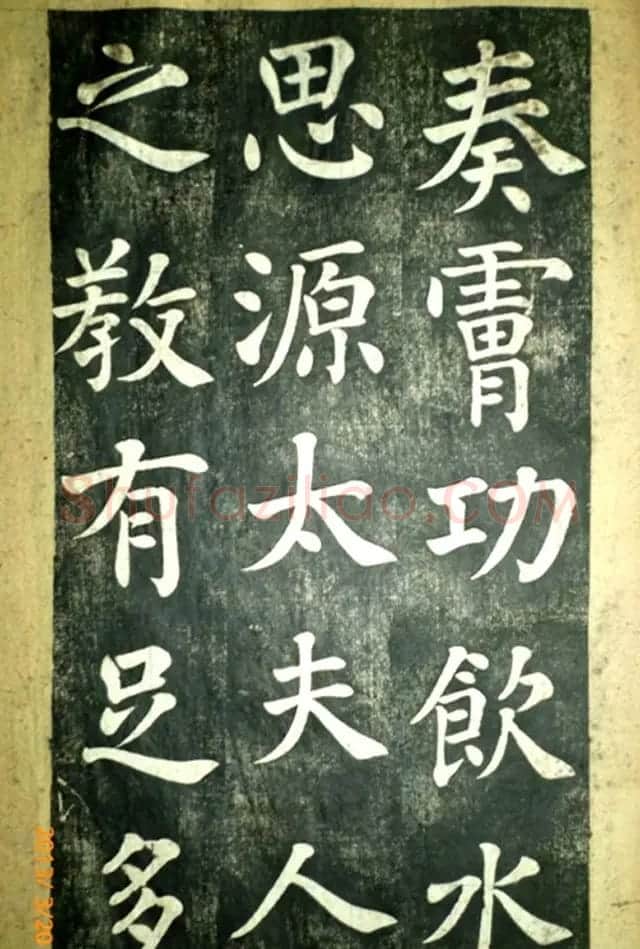 奏膚功飲水
思源太夫人
之教有足多
Shufaziliao.COM